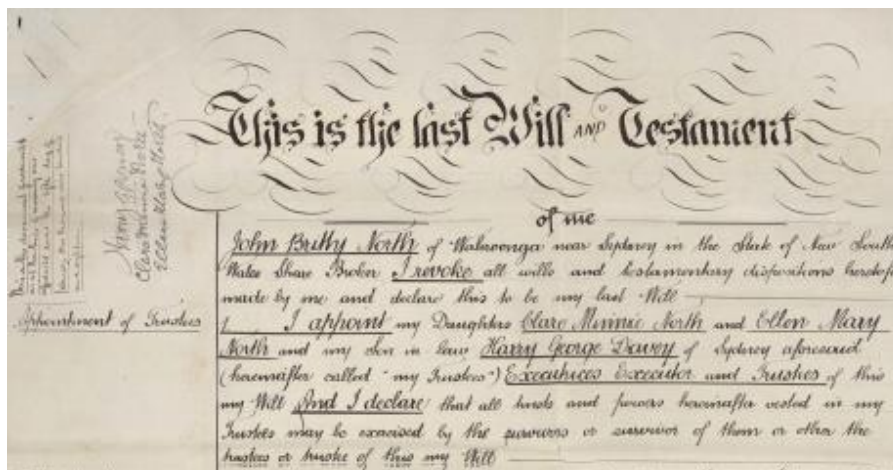 This is the last Will AND Testament
of me
John Britty North of Wahroonga near Sydney in the State of New South
Wales Share Broker I revoke all wills and testamentary dispositions heretofore
made by me and declare this to be my last Will
Appointment of Trustees
1. I appoint my Daughters Clare Minnie North and Ellen Mary
North and my Son in law Harry George Davey of Sydney aforesaid
(hereinafter called "my Trustees") Executrices Executor and Trustees of this
my Will And I declare that all trusts and powers hereinafter vested in my
Trustees may be exercised by the survivors or survivor of them or other the
trustees or trustee of this my Will